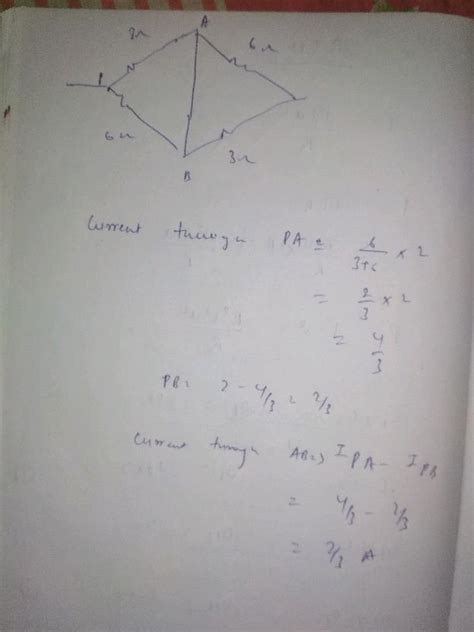 A
3Ω
6Ω
P
6Ω
3Ω
B
Current through PA = 6/3+6 × 2
= 2/3 × 2
= 4/3
PB = 2 - 4/3 = 2/3
Current through AB => I PA - I PB
= 4/3 - 2/3
= 2/3 A